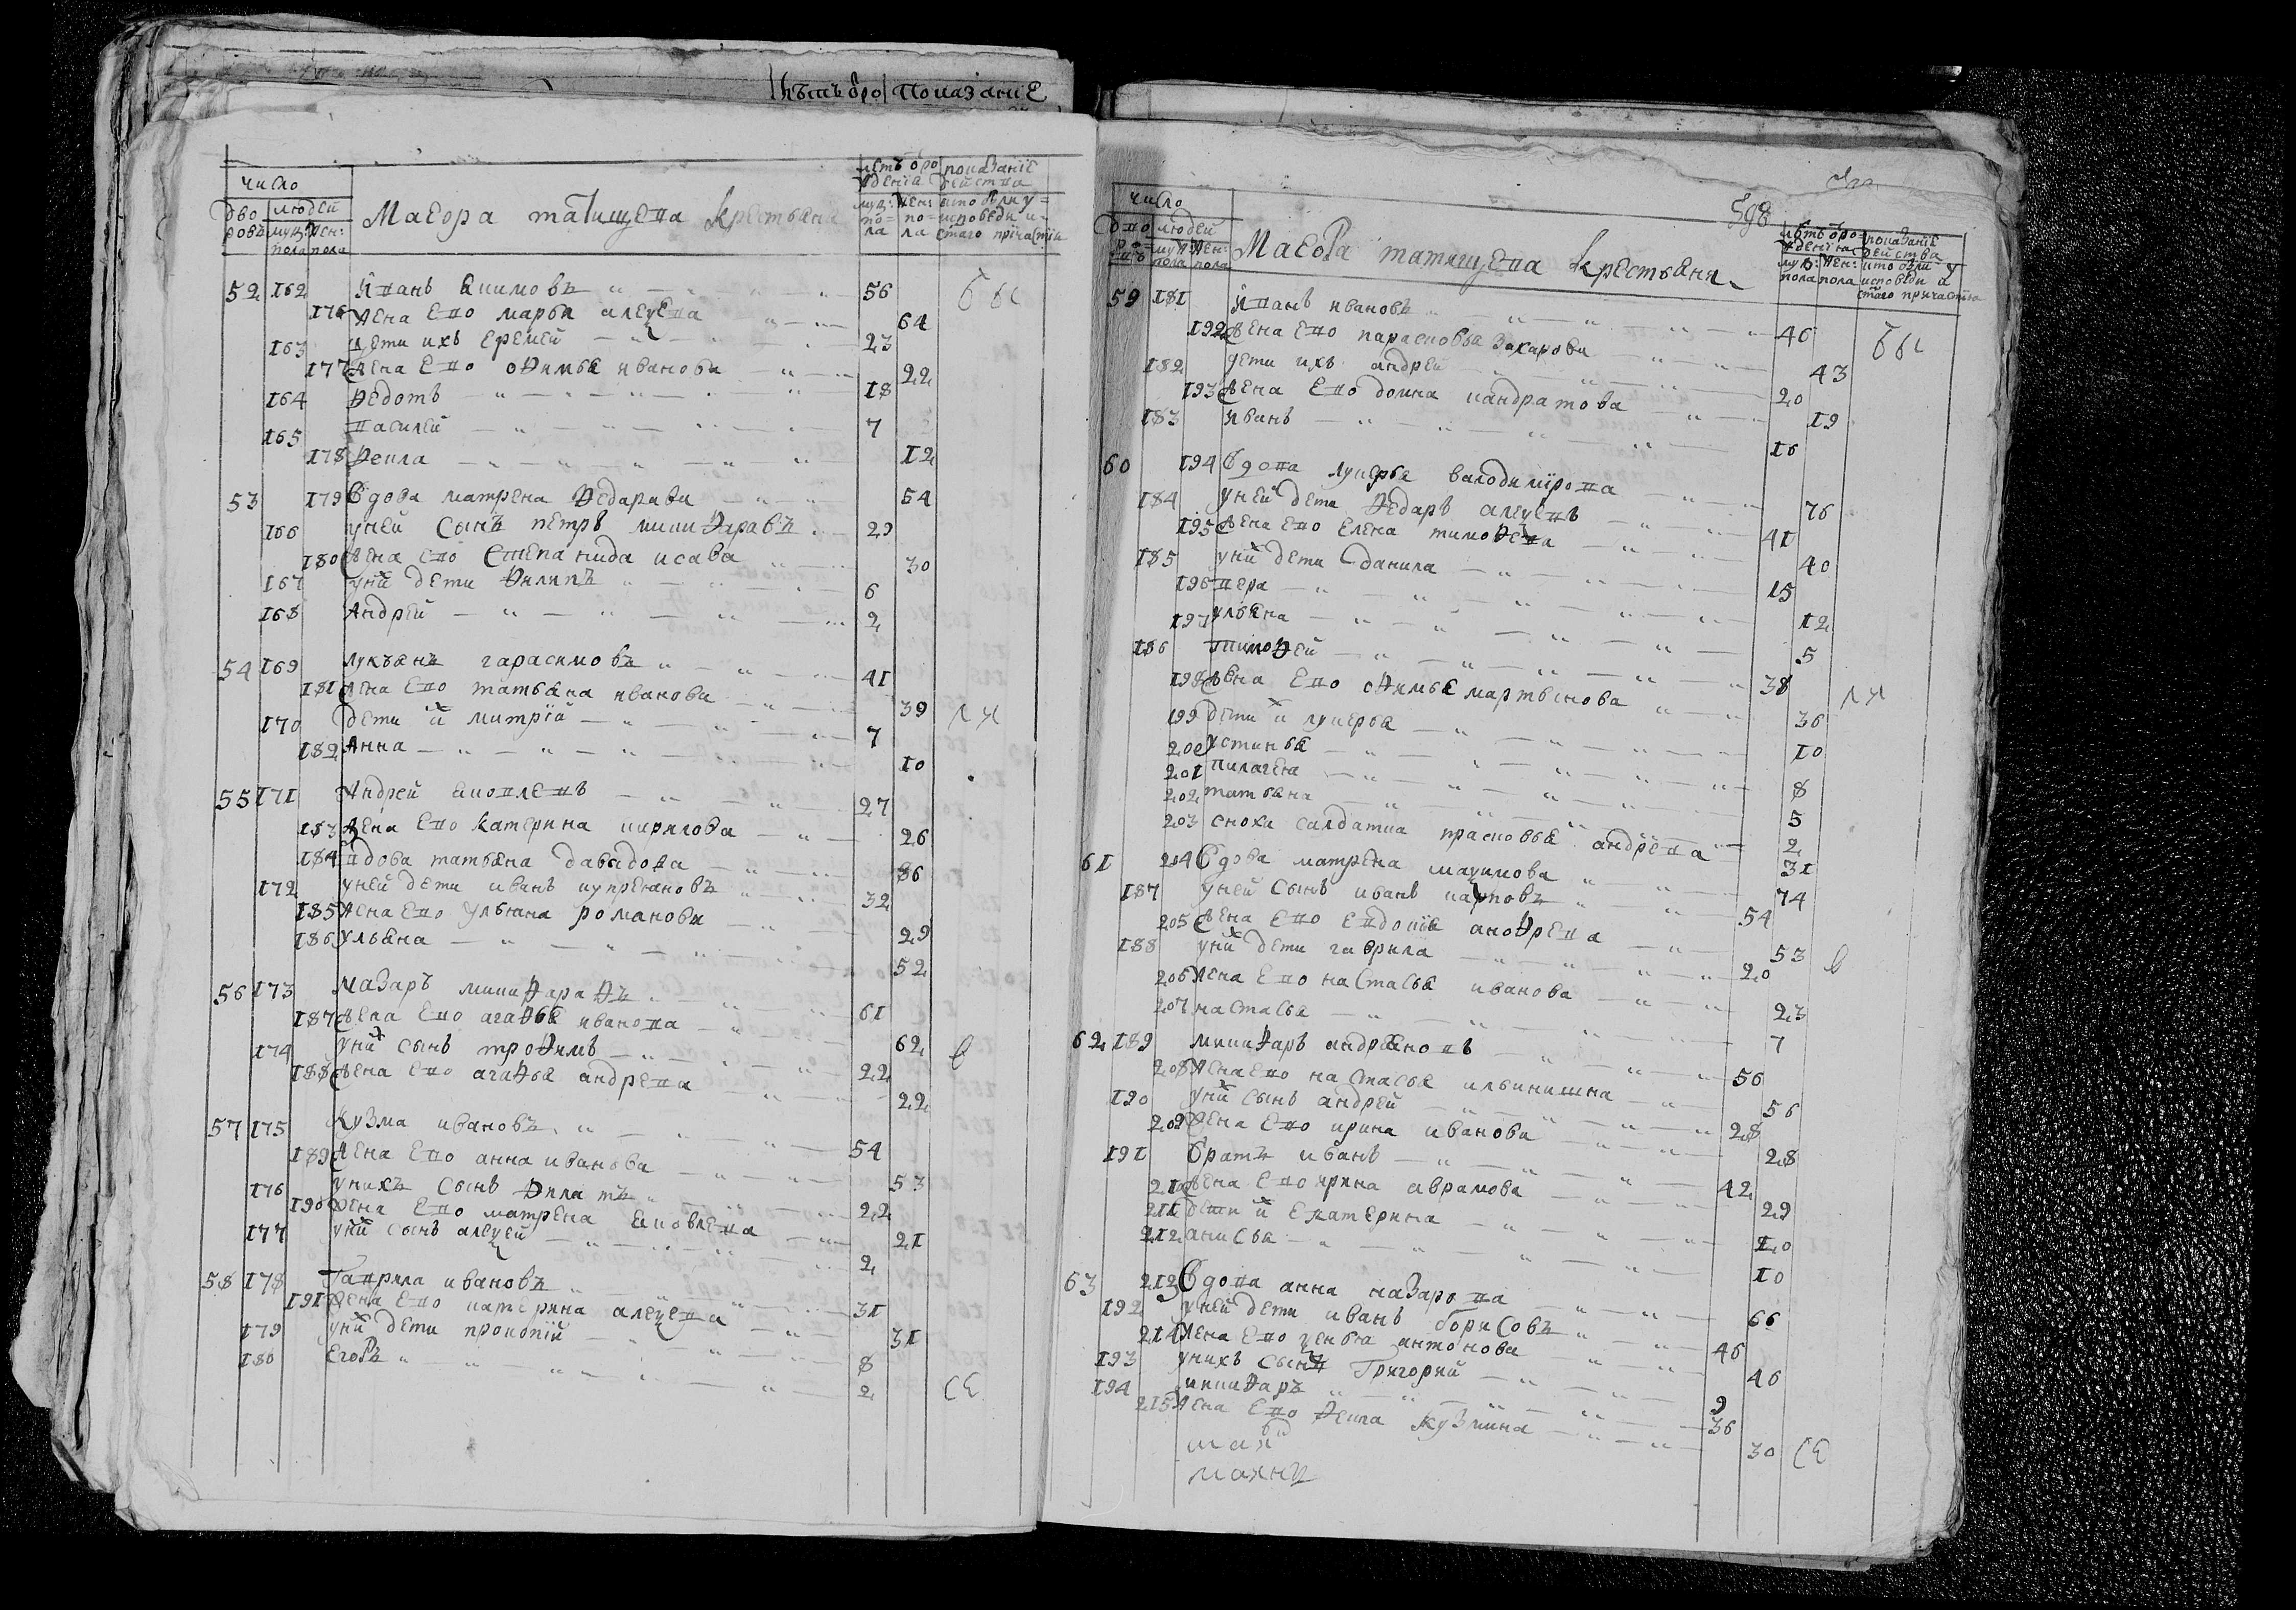 лѣтъ вро показание
число
дво людей
ровъ муж: жен:
пола пола
Маеора татищева крестьяня
летъ вро показаніе
жденїя действа
муж: жен: кто были у
по= по= исповеди и
ла ла стаго причастія
52 162 Иванъ екимовъ 56 бы
176 жена ево марья алеѯева 64
163 дети ихъ еремей 23
177 жена ево офимья иванова 22
164 Федотъ 18
165 василей 7
178 Фекла 12
53 179 вдова матрена Федарава 54
166 уней сынъ петръ микифаравъ 29
180 жена ево степанида исава 30
167 уних дети Филипъ 6
168 Андрей 2
54 169 лукьянъ гарасимовъ 41
181 жена ево татьяна иванова 39
170 дети их митрїй 7
182 Анна 10
55 171 Андрей яковлевъ 27
183 жена ево катерина кирилова 26
184 вдова татьяна давыдова 86
172 уней дети иванъ купреяновъ 32
185 жена ево ульяна романова 29
186 ульяна 52
56 173 назаръ микифарафъ 61
187 жена ево агафья иванова 62 в
174 уних сынъ трофимъ 22
188 жена ево агафья андрева 22
57 175 Кузма ивановъ 54
189 жена ево анна иванова 53
176 унихъ сынъ Филатъ 22
190 жена ево матрена яковлева 21
177 уних сынъ алеѯей 2
58 178 Гаврила ивановъ 31
191 жена ево катерина алеѯева 31
179 уних дети прокопїй 8
180 Егоръ 2 се
число
дво людей
ро= муж: жен:
въ пола пола
Маеора татищева крестьяня
летъ вро= показанїе
жденїя действа
муж: жен: кто были у
пола пола исповеди и
стаго причастїя
59 181 Иванъ ивановъ 46 бы
192 жена ево парасковья захарова 43
182 дети ихъ андрей 20
193 жена ево домна кандратова 19
183 иванъ 16
60 194 вдова лукерья валодимїрова 76
184 уней дети Федаръ алеѯевъ 41
195 жена ево елена тимофева 40
185 уних дети данила 15
196 вера 12
197 ульяна 5
186 тимофей 38
198 жена ево офимья мартынова 36
199 дети их лукерья 10
200 устинья 8
201 пилагея 5
202 татьяна 2
203 сноха салдатка прасковья андрева 31
61 204 вдова матрена маѯимова 74
187 уней сынъ иванъ карповъ 54
205 жена ево евдокїя анофрева 53 в
188 уних дети гаврила 20
206 жена ево настасья иванова 23
207 настасья 7
62 189 микифаръ андреяновъ 56
208 жена ево настасья ильинишна 56
190 уних сынъ андрей 28
209 жена ево ирина иванова 28
191 братъ иванъ 42
210 жена ево ирина аврамова 29
211 дети их екатерина 20
212 анисья 10
63 213 вдова анна назарова 66
192 уней дети иванъ борисовъ 46
214 жена ево ѯенья антонова 46
193 унихъ сынъ Григорий 9
194 микифаръ 36
215 жена ево Фекла кузмина 30 се